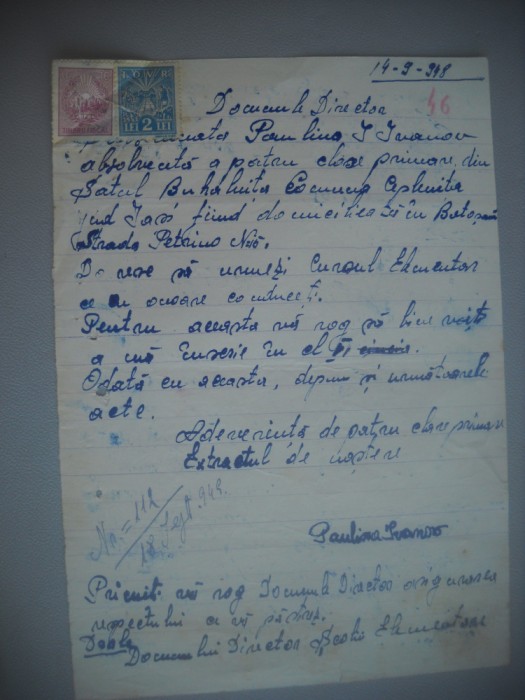 14-9-948
46
Domnule Director
Paulina I Ivanov
absolventă a patru clase primare, din
Satul Buhalnița Comuna Ceplenița
Jud Iași fiind domiciliată în Botoșani
Strada Petrino No
Doresc să urmez Cursul Elementar
ce cu onoare conduceți.
Pentru aceasta vă rog să bine voiți
a mă înscrie în cl
Odată cu aceasta, depun și următoarele
acte.
Adeverință de patru clase primare
Extractul de naștere
Nr. = 112
Sept 948.
Paulina Ivanov
Primiți vă rog Domnule Director asigurarea
respectului ce vă păstrez.
Domnului Director Școlii Elementare